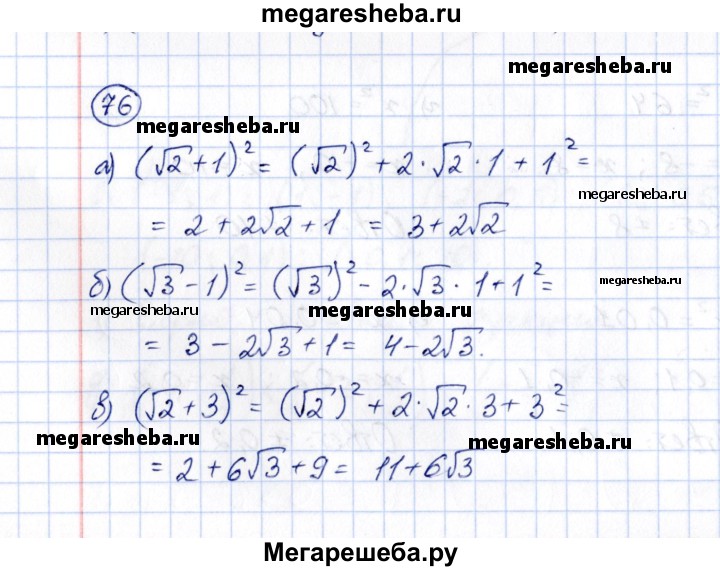 megaresheba.ru
megaresheba.ru
76
megaresheba.ru
а) (√2 + 1)² = (√2)² + 2·√2·1 + 1² =
megaresheba.ru
= 2 + 2√2 + 1 = 3 + 2√2
б) (√3 - 1)² = (√3)² - 2·√3·1 + 1² =
megaresheba.ru
megaresheba.ru
megaresheba.ru
= 3 - 2√3 + 1 = 4 - 2√3.
в) (√2 + 3)² = (√2)² + 2·√2·3 + 3² =
megaresheba.ru
megaresheba.ru
= 2 + 6√3 + 9 = 11 + 6√3
Мегарешеба.ру